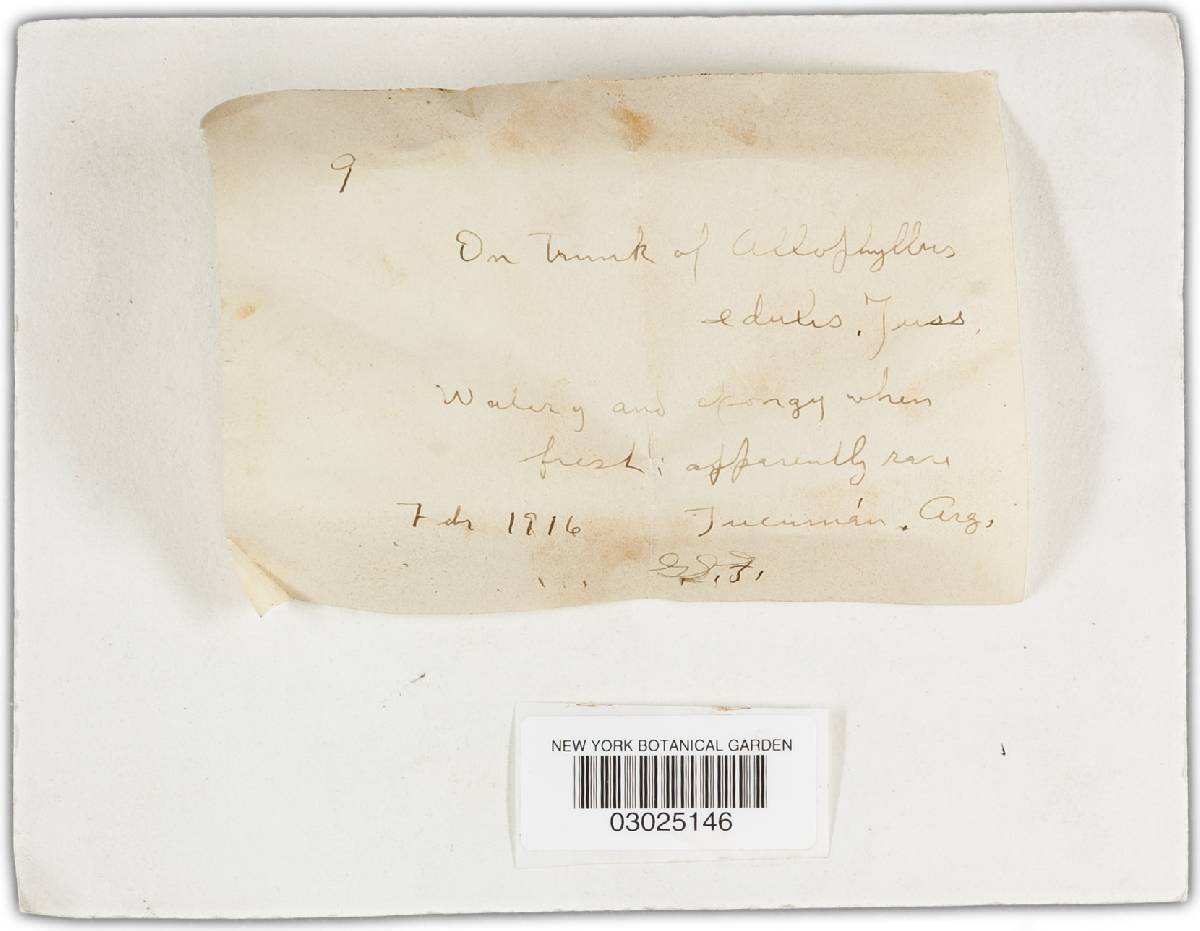 9
On trunk of Allophyllus
edulis, Juss.
Watery and spongy when
fresh; apparently rare
Feb 1916 Tucumán, Arg.
NEW YORK BOTANICAL GARDEN
03025146